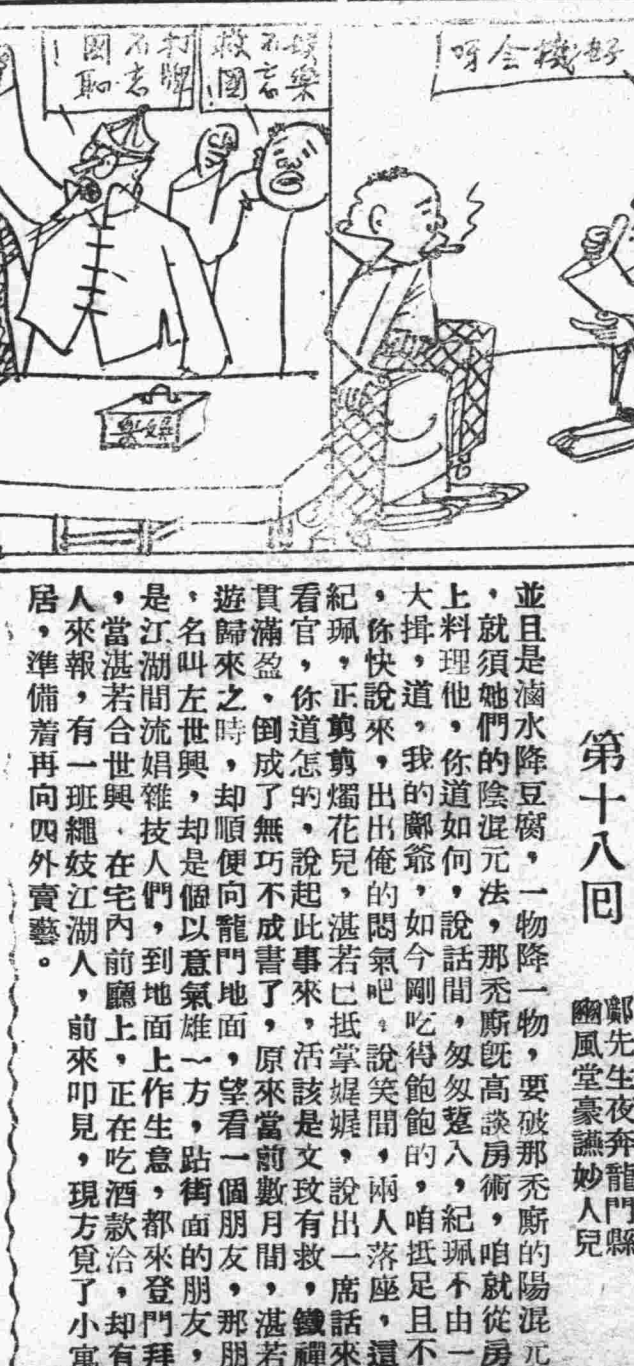 好機會呀
娛樂
不忘
救國
！
打牌
不忘
國恥
！
娛樂
第十八回
鄺先生夜奔龍門縣
豳風堂豪讌妙人兒
並且是滷水降豆腐，一物降一物，要破那禿廝的陽混元
，就須她們的陰混元法，那禿廝旣高談房術，咱就從房
上料理他，你道如何，說話間，匆匆踅入，紀珮不由一
大揖，道，我的鄺爺，如今剛吃得飽飽的，咱抵足且不
，你快說來，出出俺的悶氣吧，說笑間，兩人落座，這
紀珮，正剪剪燭花兒，湛若已抵掌娓娓，說出一席話來
看官，你道怎的，說起此事來，活該是文玟有救，鐵禪
貫滿盈，倒成了無巧不成書了，原來當前數月間，湛若
遊歸來之時，却順便向龍門地面，望看一個朋友，那朋
，名叫左世興，却是個以意氣雄一方，跕街面的朋友，
是江湖間流娼雜技人們，到地面上作生意，都來登門拜
，當湛若合世興，在宅內前廳上，正在吃酒款洽，却有
人來報，有一班繩妓江湖人，前來叩見，現方覓了小寓
居，準備着再向四外賣藝。